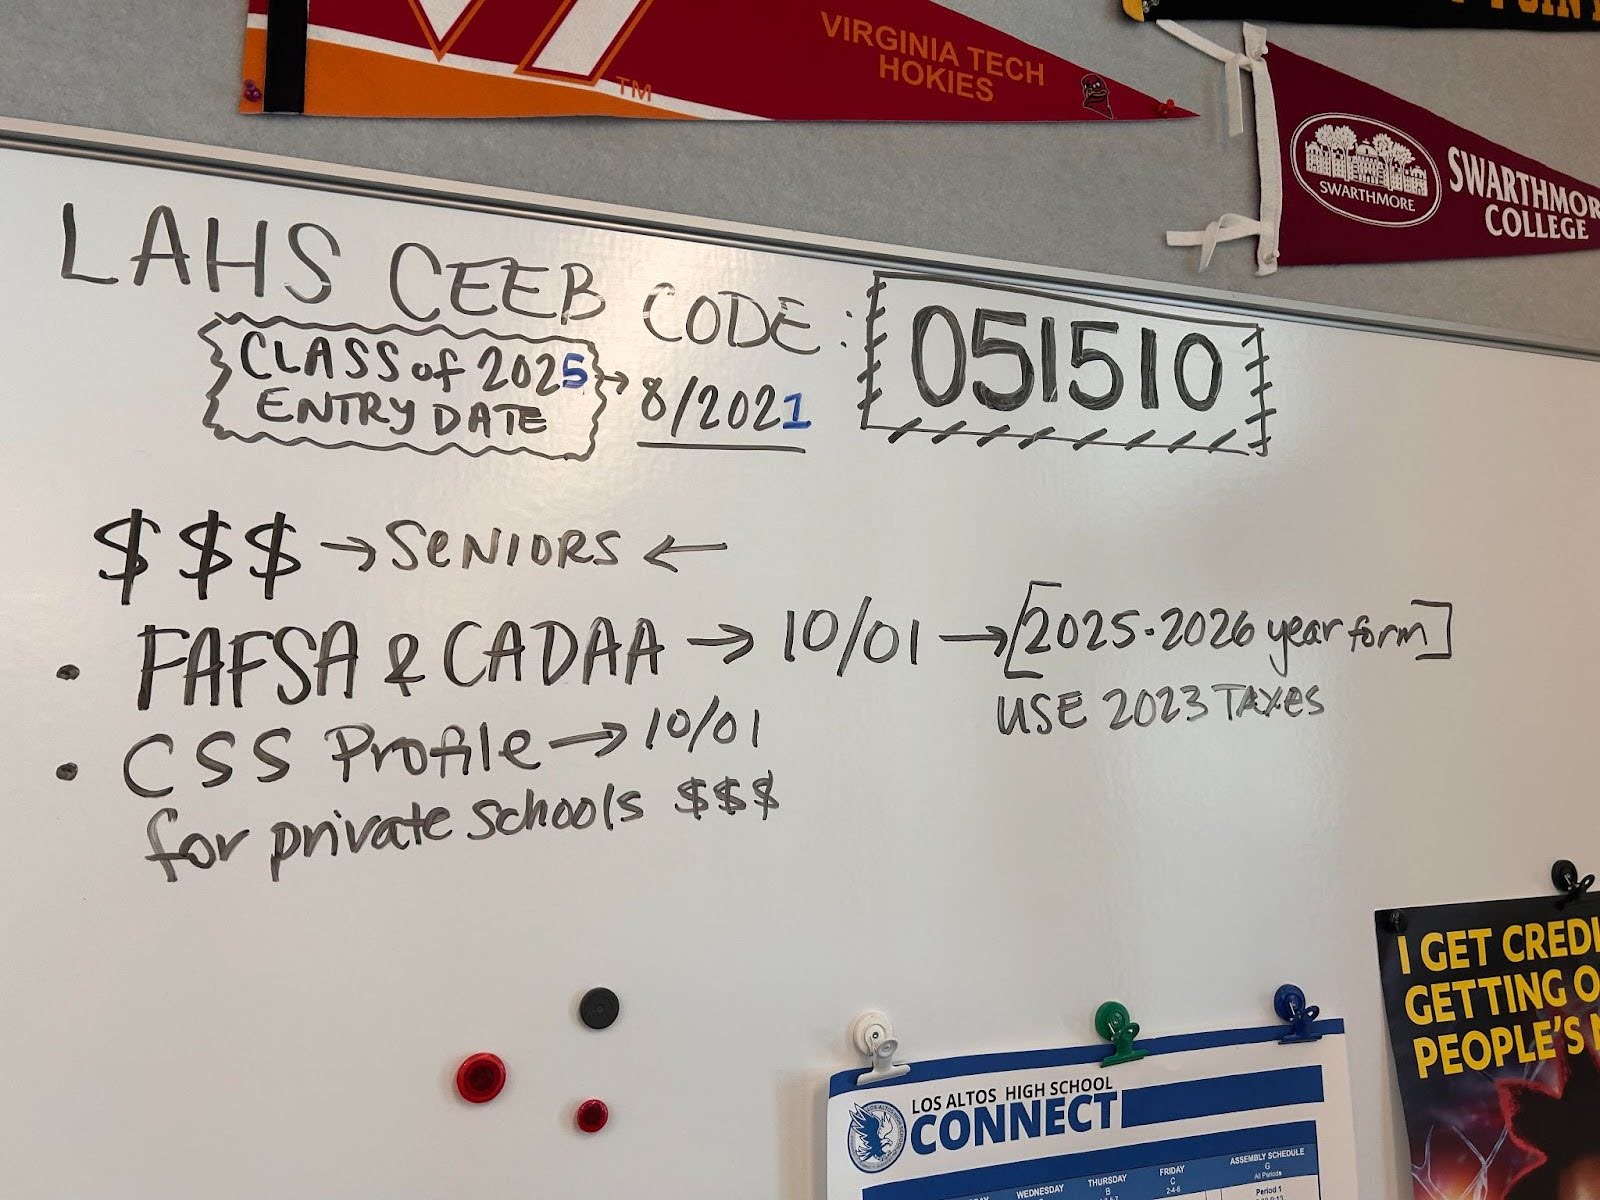 VIRGINIA TECH
HOKIES
TM
SWARTHMORE
SWARTHMOR
COLLEGE
LAHS CEEB CODE: 051510
CLASS of 2025
ENTRY DATE → 8/2021
$$$ → SENIORS ←
• FAFSA & CADAA → 10/01 → [2025-2026 year form]
USE 2023 TAXES
• CSS Profile → 10/01
for private schools $$$
I GET CREDI
GETTING O
PEOPLE'S
LOS ALTOS HIGH SCHOOL
CONNECT
WEDNESDAY
THURSDAY
B
FRIDAY
C
2-4-6
ASSEMBLY SCHEDULE
G
All Periods
Period 1